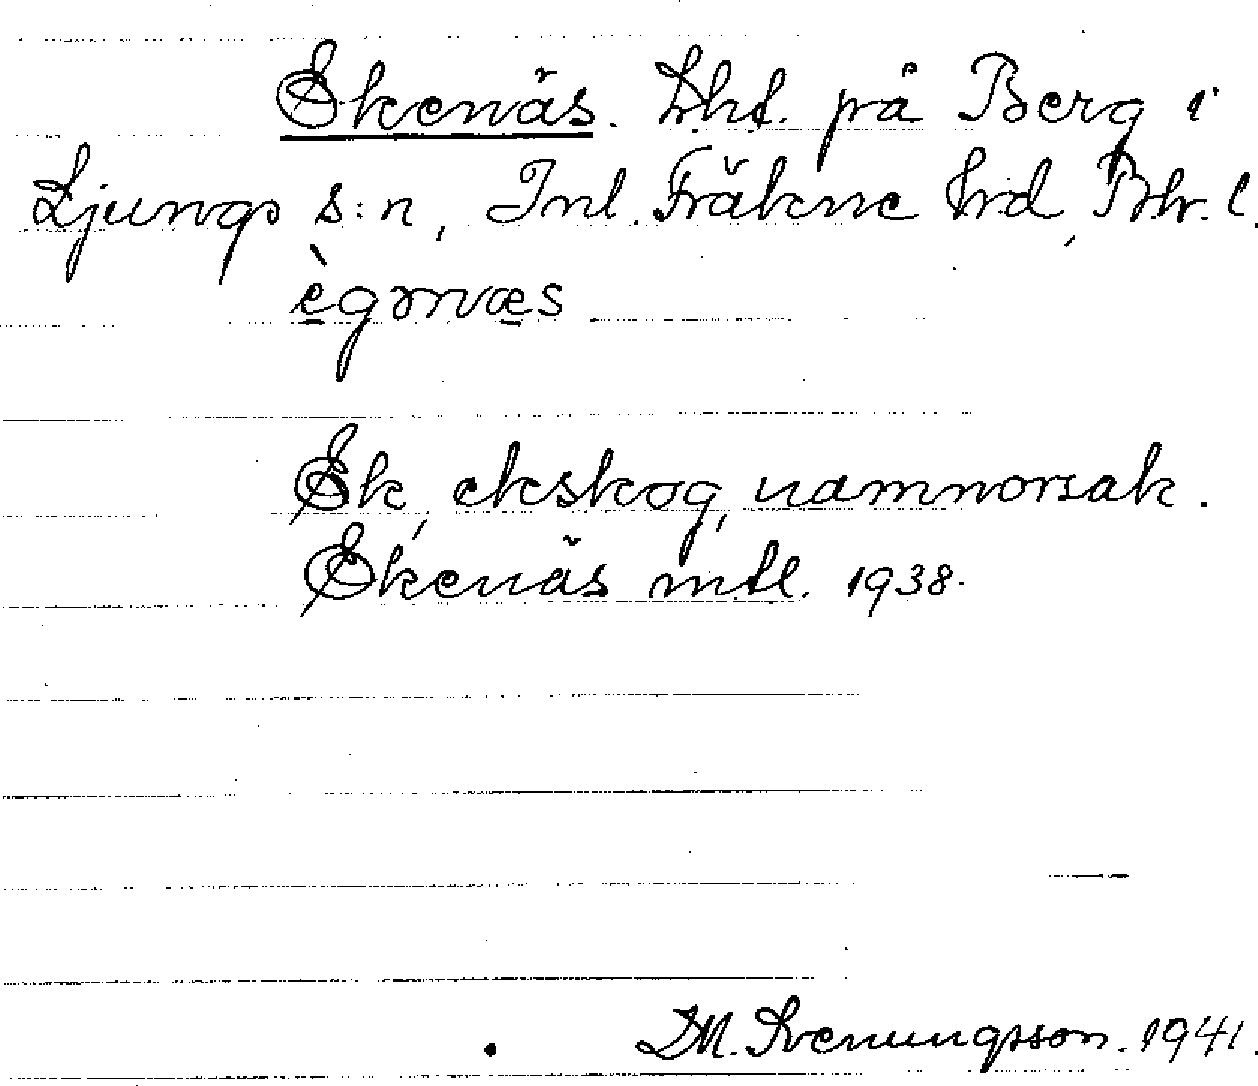 Ekenäs. Lht. på Berg i
Ljungs s:n, Inl. Fräkne hrd, Bhr. l.
ègənæs
Ek, ekskog, namnorsak.
Ekenäs mtl. 1938.
D.M. Svenungsson. 1941.